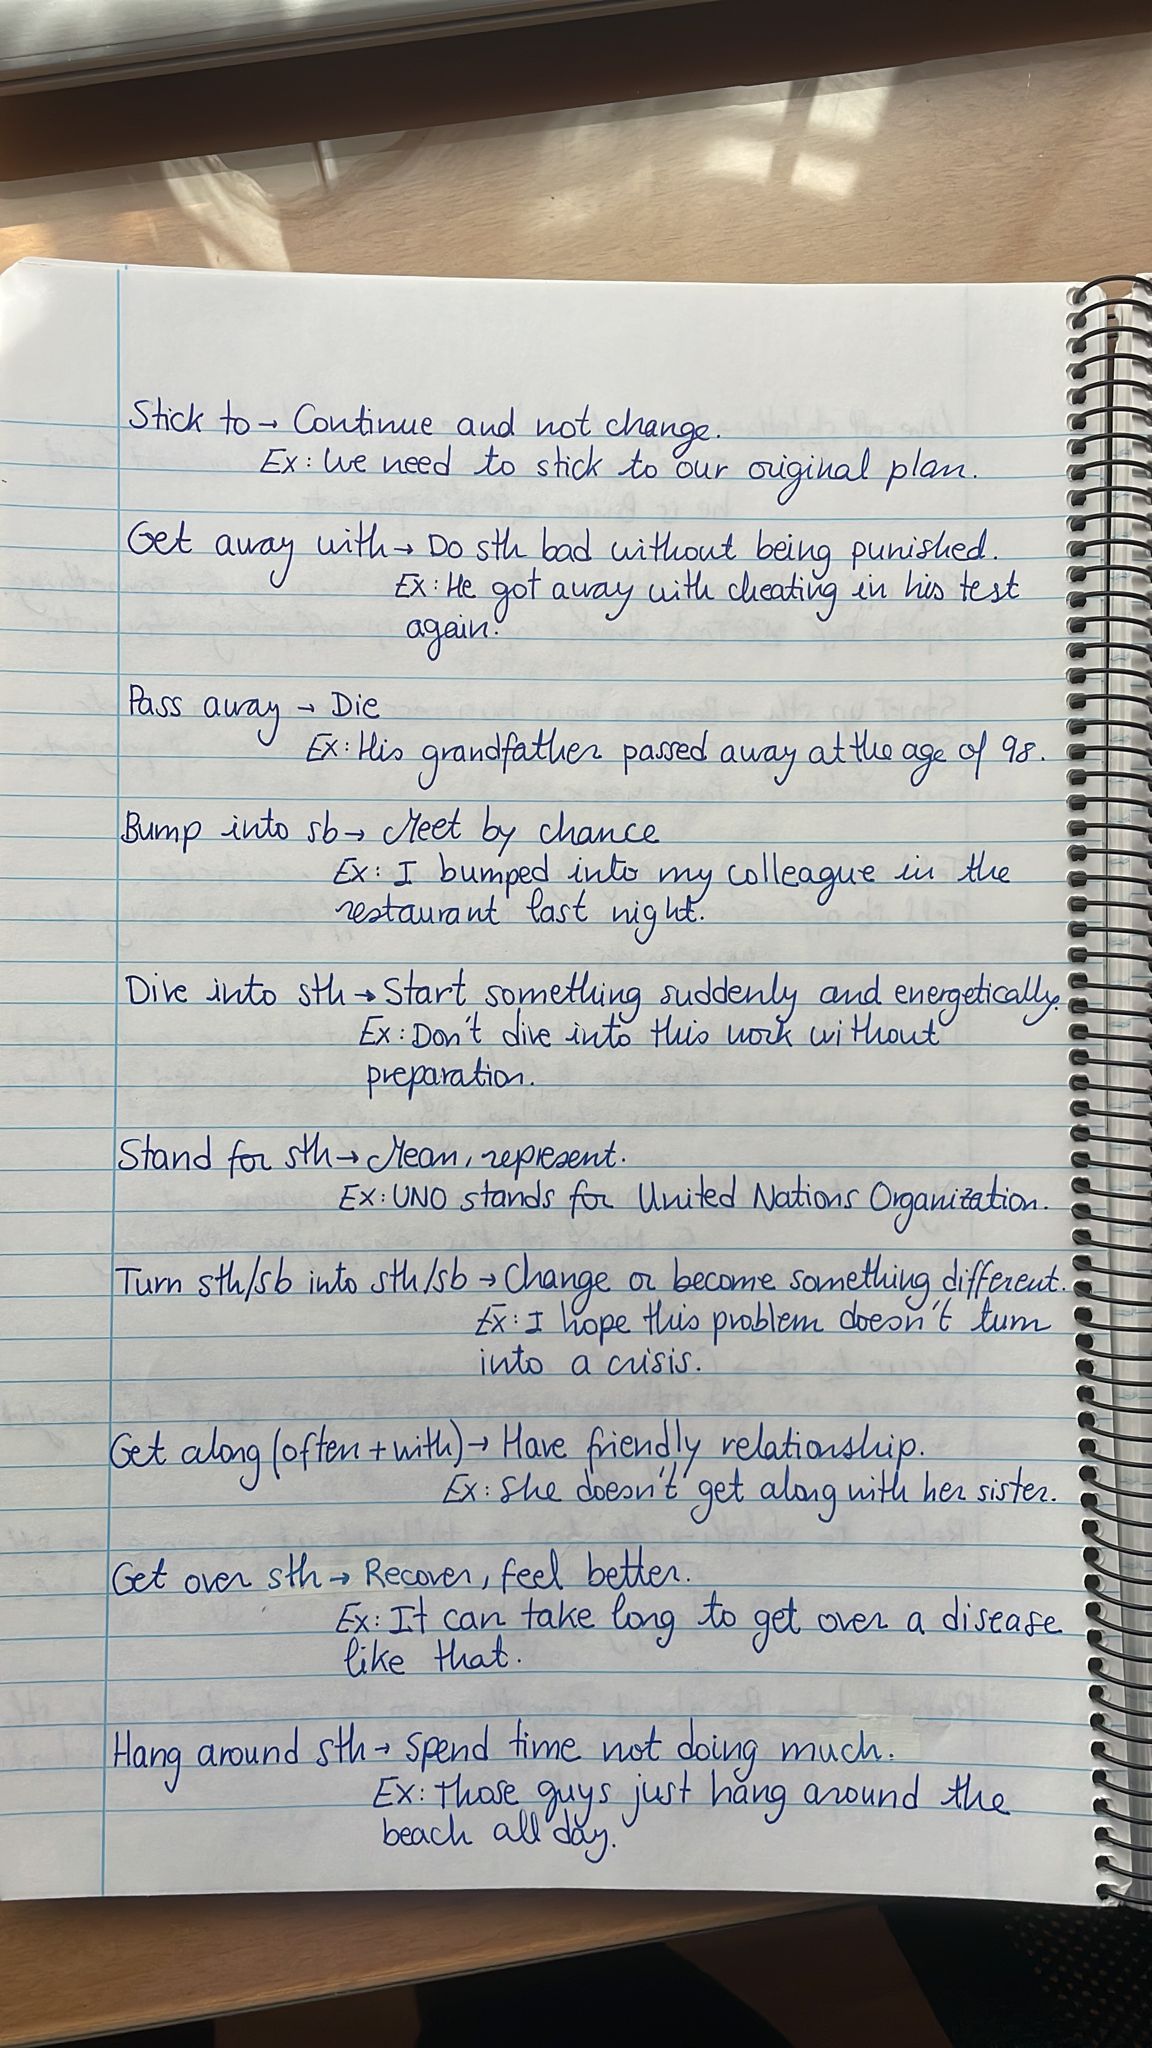 Stick to → Continue and not change.
Ex: We need to stick to our original plan.
Get away with → Do sth bad without being punished.
Ex: He got away with cheating in his test
again.
Pass away → Die
Ex: His grandfather passed away at the age of 98.
Bump into sb → Meet by chance
Ex: I bumped into my colleague in the
restaurant last night.
Dive into sth → Start something suddenly and energetically.
Ex: Don't dive into this work without
preparation.
Stand for sth → Mean, represent.
Ex: UNO stands for United Nations Organization.
Turn sth/sb into sth/sb → Change or become something different.
Ex: I hope this problem doesn't turn
into a crisis.
Get along (often + with) → Have friendly relationship.
Ex: She doesn't get along with her sister.
Get over sth → Recover, feel better.
Ex: It can take long to get over a disease
like that.
Hang around sth → Spend time not doing much.
Ex: Those guys just hang around the
beach all day.